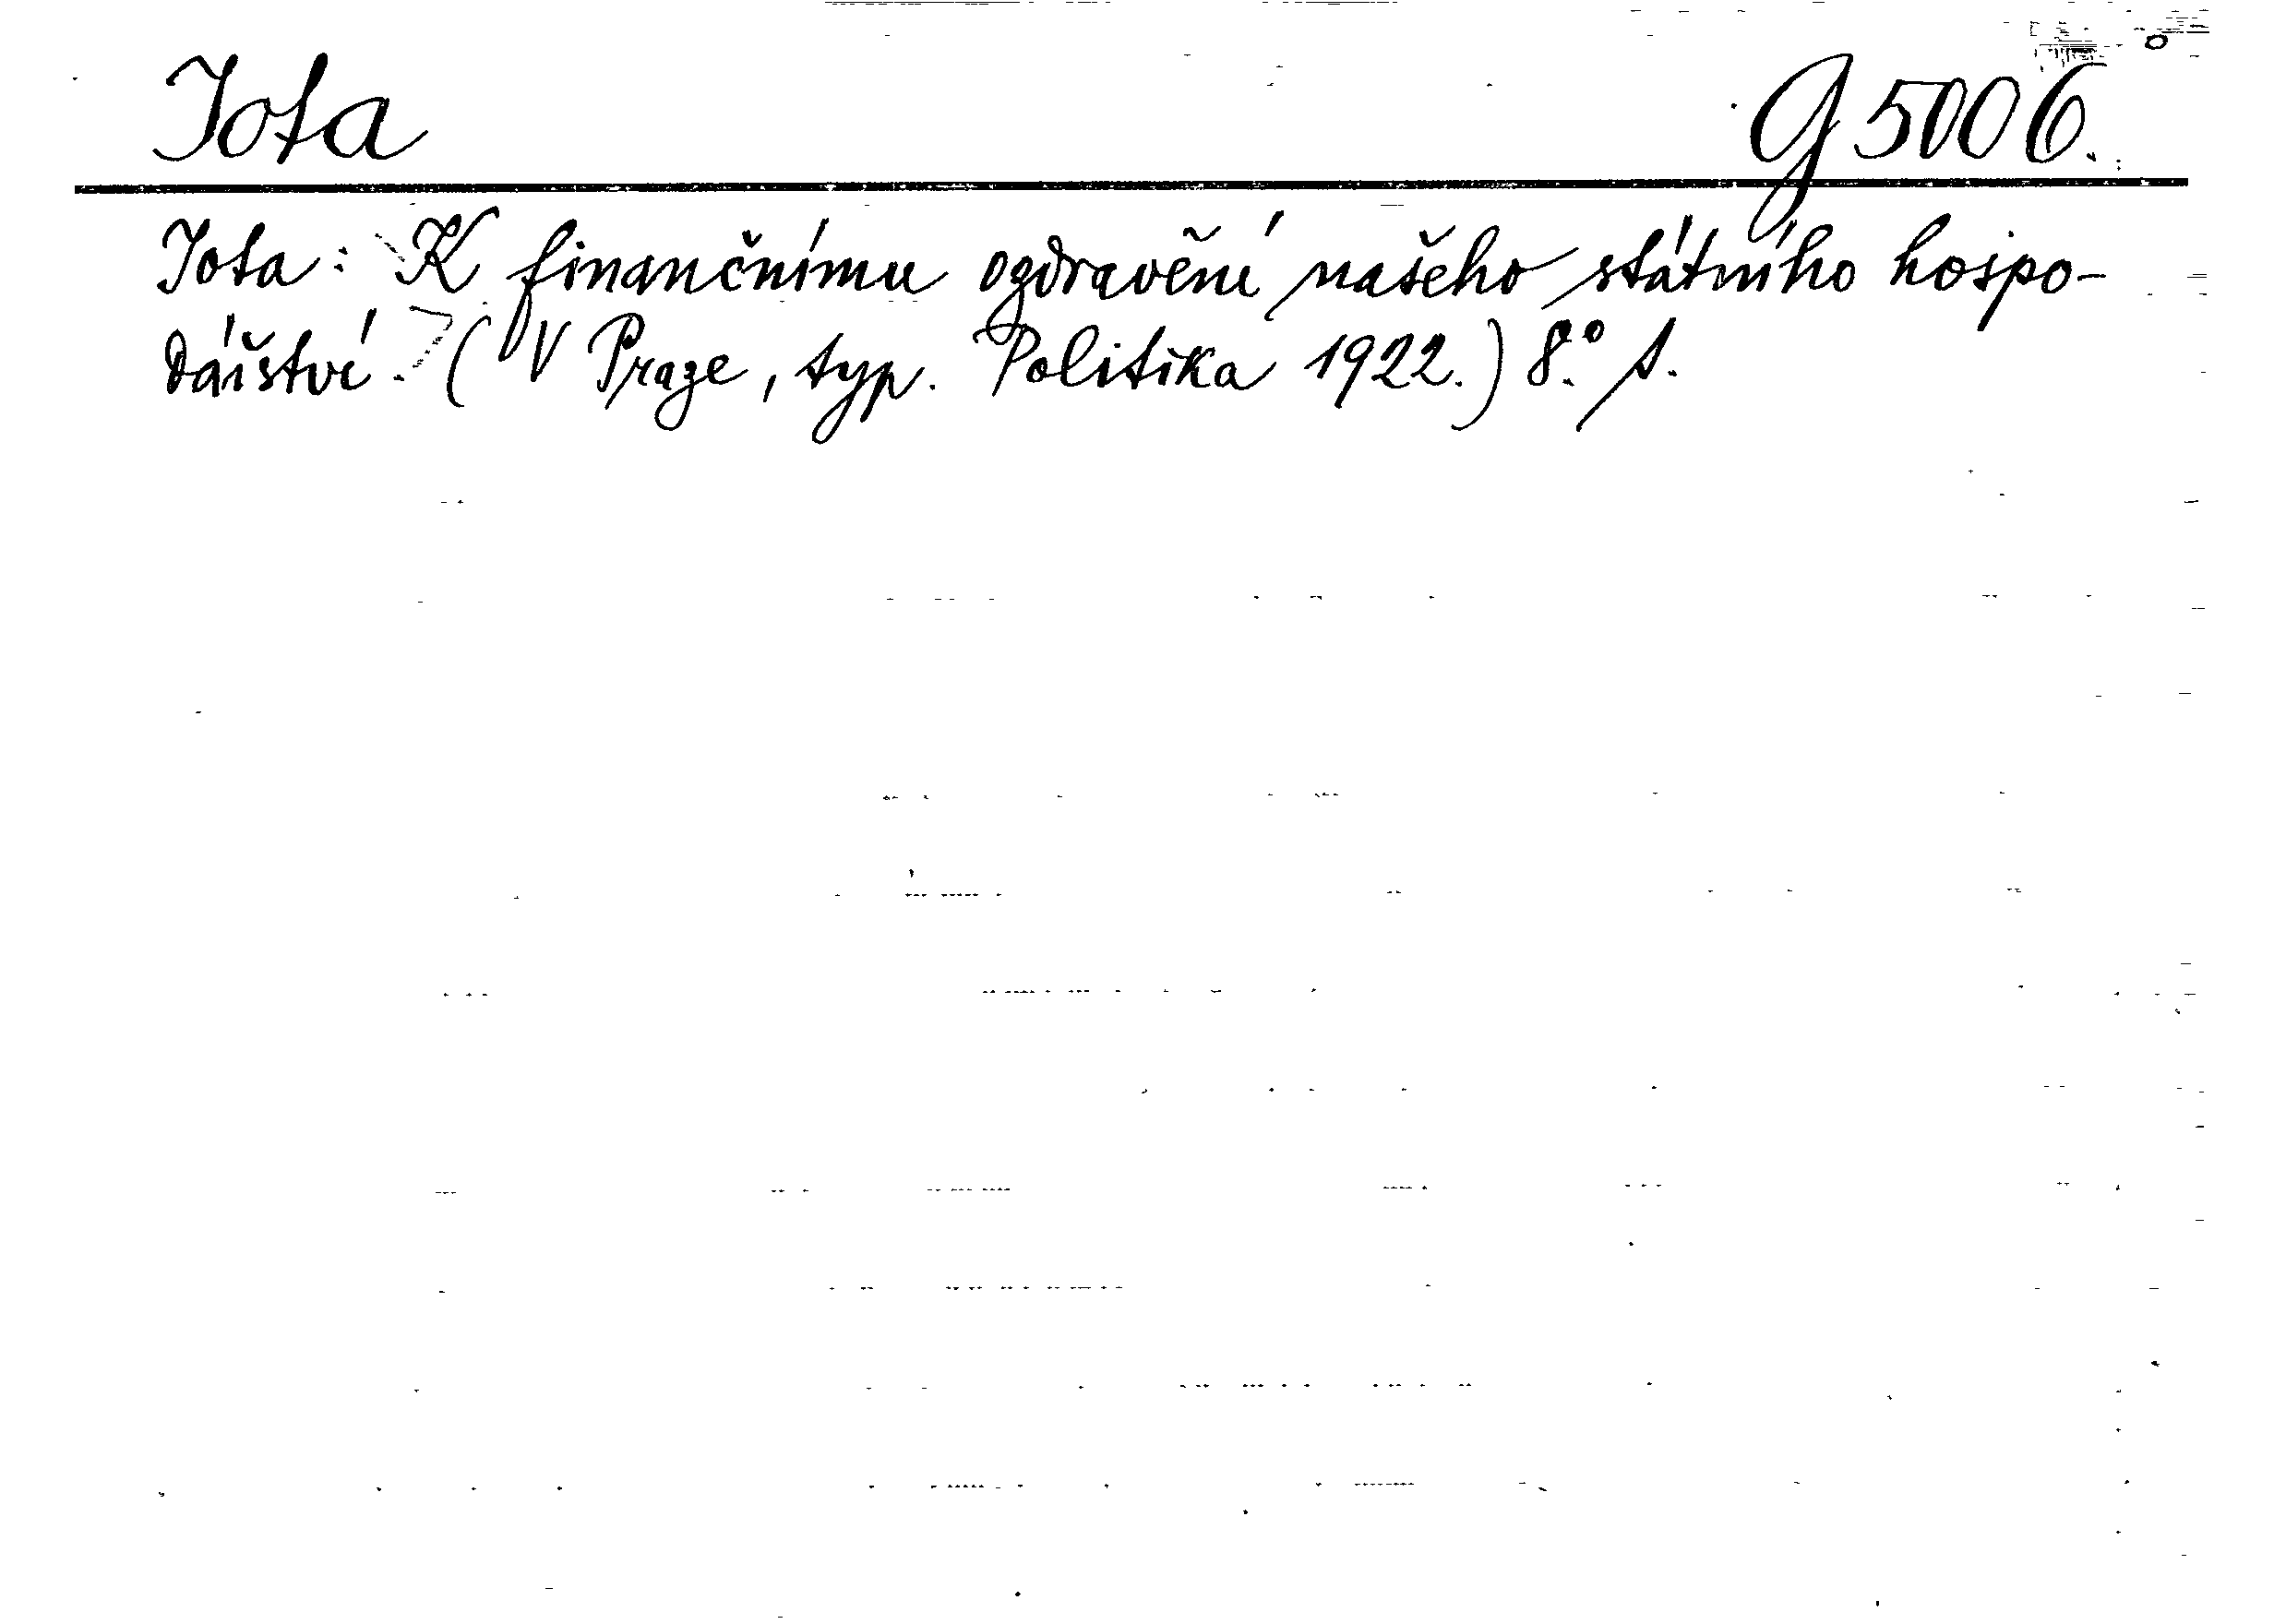 Iota G 5006.
Iota: K finančnímu ozdravění našeho státního hospo-
dářství. (V Praze, typ. Politika 1922.) 8.° A.